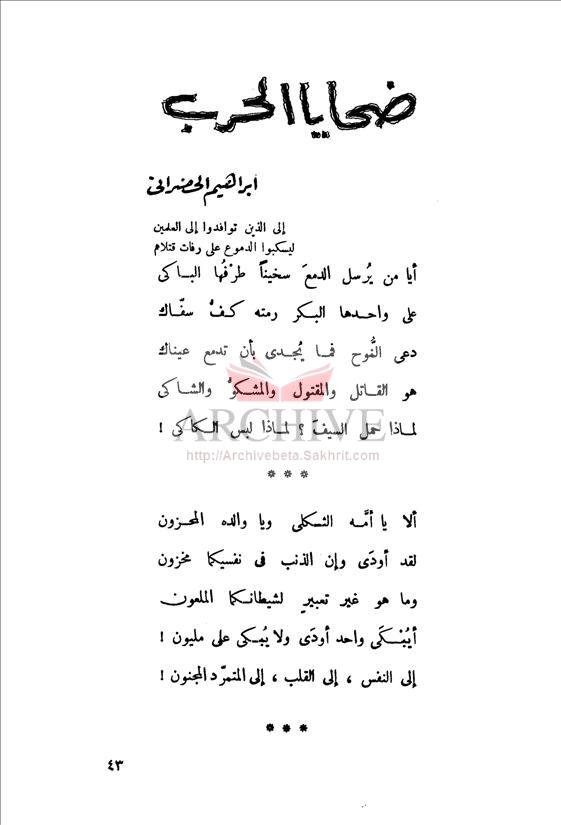 ضحايا الحرب
ابراهيم الحضرانى
إلى الذين توافدوا إلى العلمين
ليسكبوا الدموع على رفات قتلاهم
أيا من يُرسل الدمعَ سخيناً طرْفُها الباكى
على واحدها البكر رمته كفُّ سفّاك
دعى النُّوح فما يُجدى بأن تدمع عيناك
هو القاتل والمقتول والمشكوُّ والشاكى
لماذا حمل السيفَ ؟ لماذا لبس الكاكى !
ARCHIVE
http://Archivebeta.Sakhrit.com
* * *
ألا يا أمَّه الثكلى ويا والده المحزون
لقد أودَى وإن الذنب فى نفسيكما مخزون
وما هو غير تعبيرٍ لشيطانكما الملعون
أيُبْكَى واحد أودَى ولا يُبكى على مليون !
إلى النفس ، إلى القلب ، إلى المتمرّد المجنون !
* * *
٤٣